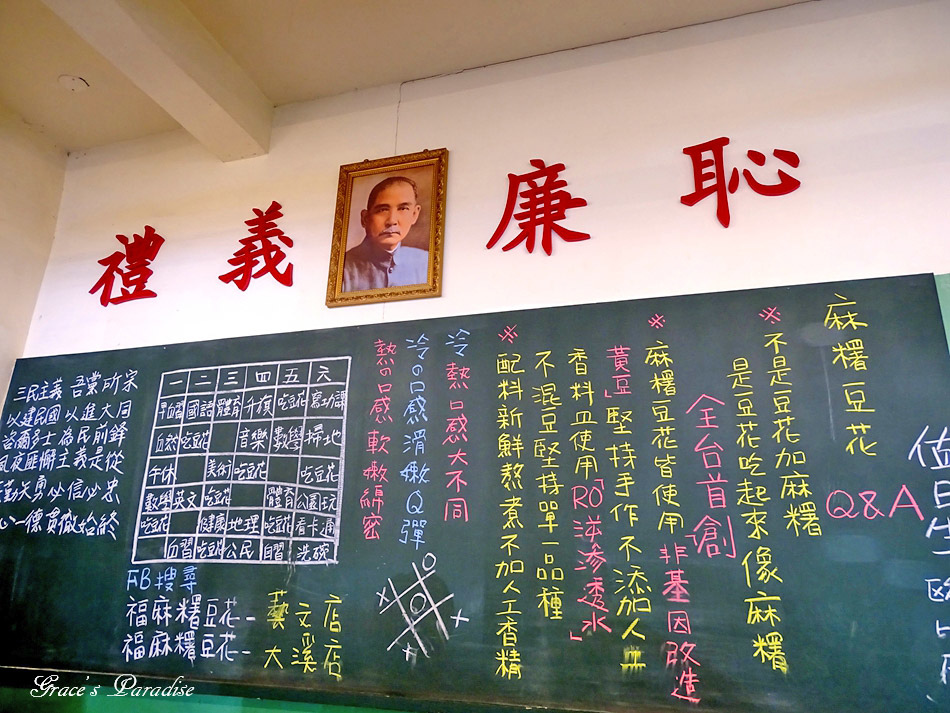 禮 義 廉 恥
三民主義 吾黨所宗
以建民國 以進大同
咨爾多士 為民前鋒
夙夜匪懈 主義是從
勤矢勇 必信必忠
心一德 貫徹始終
一 二 三 四 五 六
早自習 國語 體育 升旗 吃豆花 寫功課
自然 吃豆花 音樂 數學 掃地
午休 美術 吃豆花 吃豆花
數學 英文 吃豆花 體育 公園玩
吃豆花 健康 地理 吃豆花 看卡通
自習 吃豆花 公民 自習 洗碗
FB搜尋
福麻糬豆花-藝文店
福麻糬豆花-大溪店
麻糬豆花
Q&A
※不是豆花加麻糬
是豆花吃起來像麻糬
全台首創
※麻糬豆花皆使用非基因改造
黃豆」堅持手作不添加人工
香料且使用「RO逆滲透水」
不混豆堅持單一品種
※配料新鮮熬煮不加人工香精
冷熱口感大不同
冷の口感滑嫩Q彈
熱の口感軟嫩綿密
Grace's Paradise